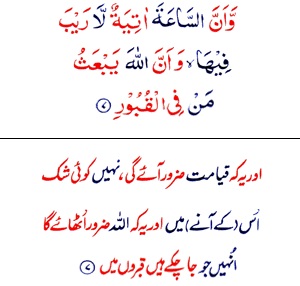 وَّاَنَّ السَّاعَةَ اٰتِيَةٌ لَّا رَيْبَ
فِيْهَا ۙ وَاَنَّ اللّٰهَ يَبْعَثُ
مَنْ فِى الْقُبُوْرِ ﴿۷﴾
اور یہ کہ قیامت ضرور آئے گی، نہیں کوئی شک
اُس (کے آنے) میں اور یہ کہ اللہ ضرور اُٹھائے گا
اُنہیں جو جا چکے ہیں قبروں میں ﴿۷﴾